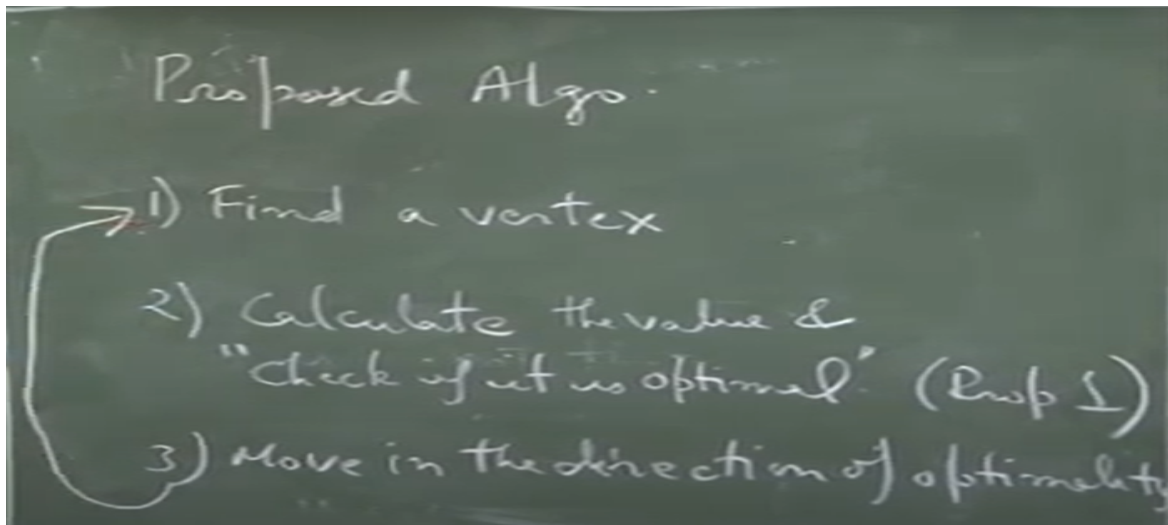 Proposed Algo.
1) Find a vertex
2) Calculate the value &
"Check if it is optimal" (Prop 1)
3) Move in the direction of optimality